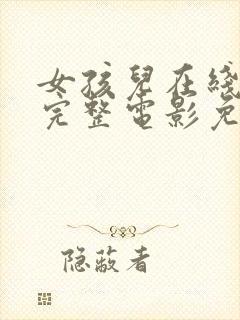 女孩儿在线
完整电影免
隐蔽者